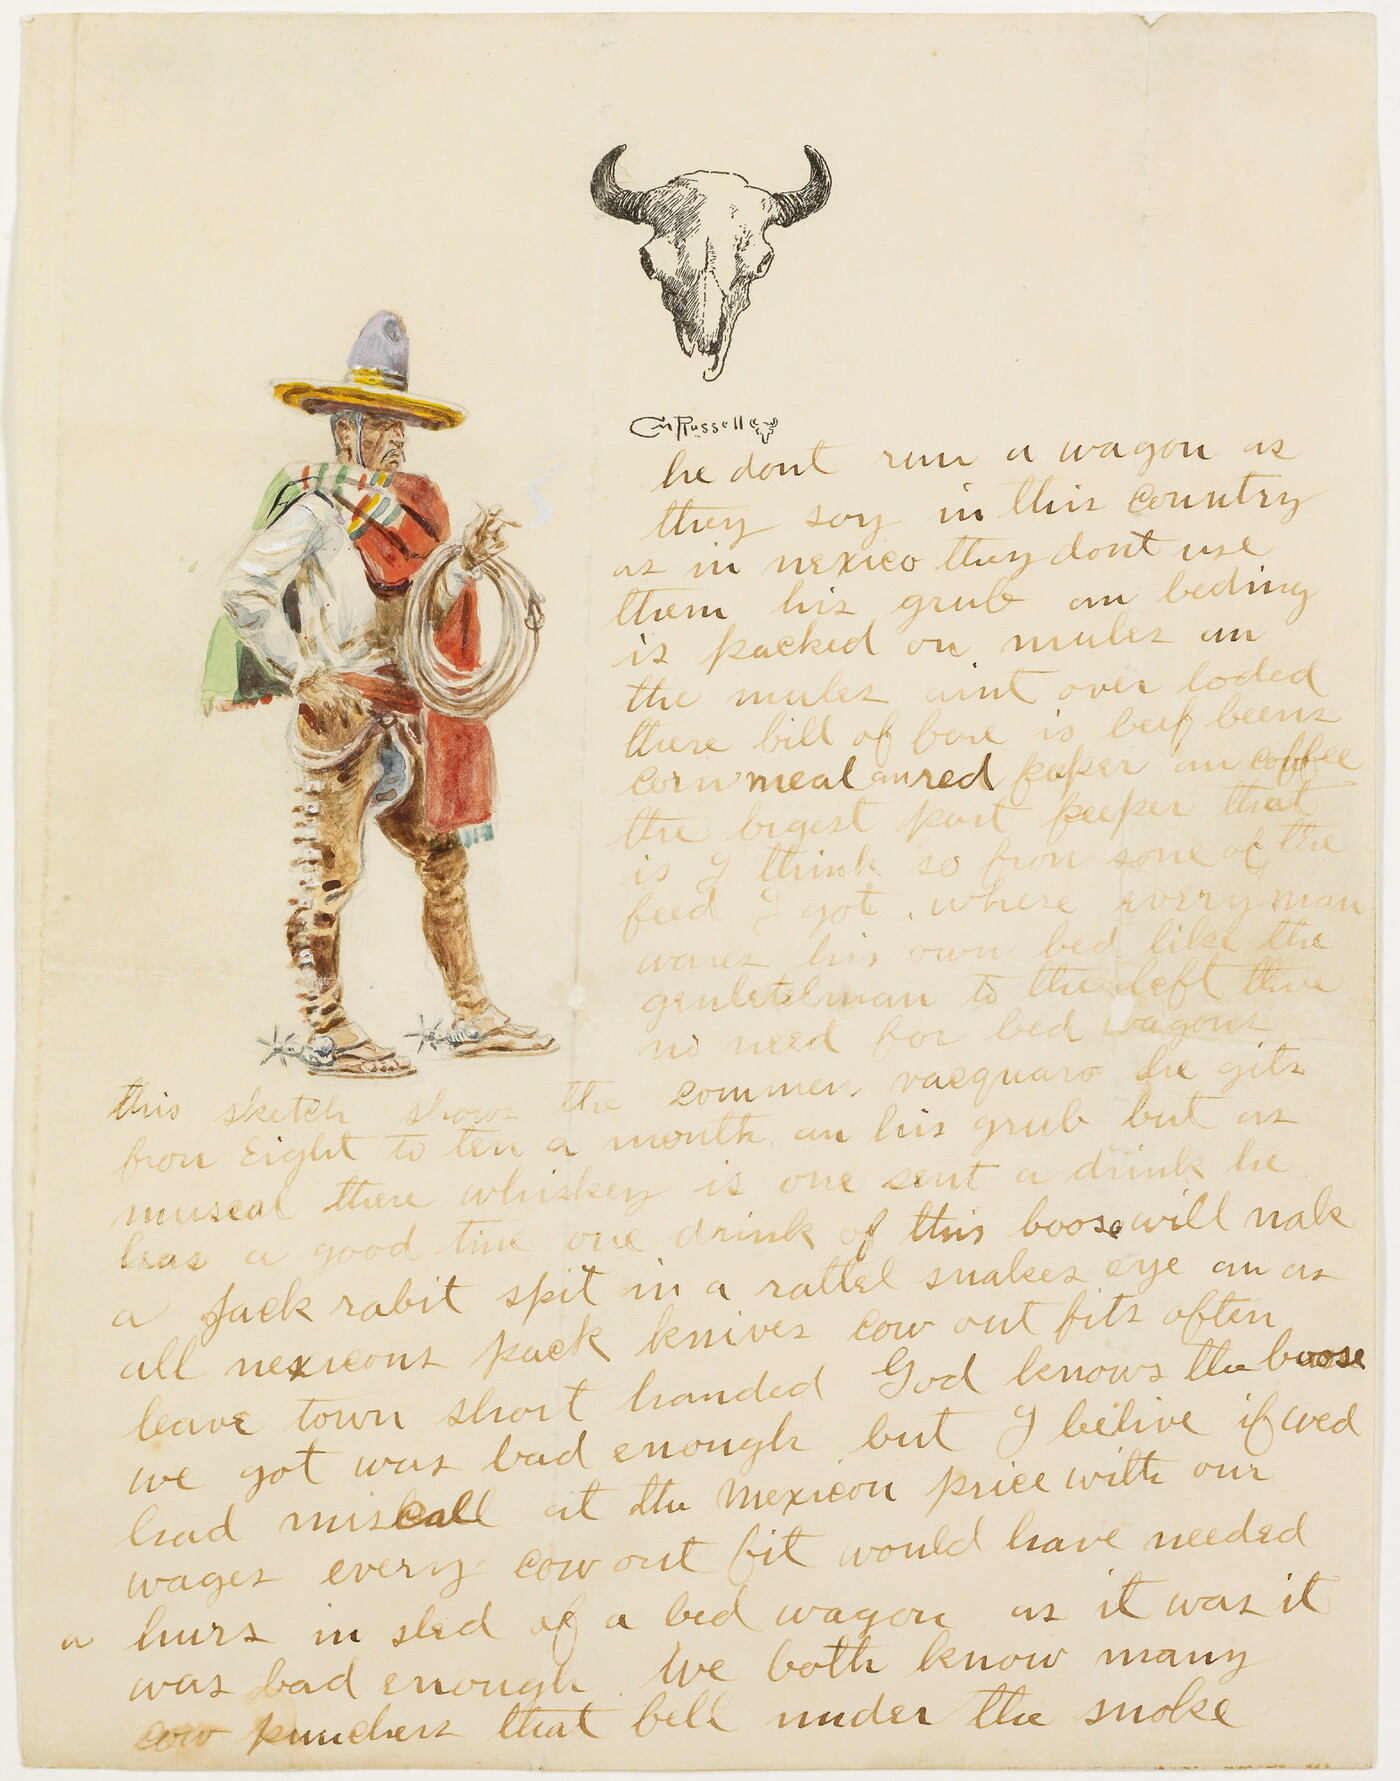 CM Russell
he dont run a wagon as
they say in this country
as in mexico they dont use
them his grub an beding
is packed on mules an
the mules aint over loded
there bill of fare is beef beens
corn meal an red peper an coffee
the bigest part peeper that
is I think so from some of the
feed I got . where every man
wares his own bed like the
gentelman to the left thire
no need for bed wagons
this sketch shows the common vacquaro he gits
from Eight to ten a month an his grub but as
muscal there whiskey is one sent a drink he
has a good time one drink of this boose will make
a Jack rabit spit in a rattel snakes eye an as
all mexicons pack knives cow out fits often
leave town short handed God knows the boose
we got was bad enough but I belive if wed
had miscall at the Mexicon price with our
wages every cow out fit would have needed
a hurs in sted of a bed wagon as it was it
was bad enough . We both know many
cow punchers that fell under the smoke